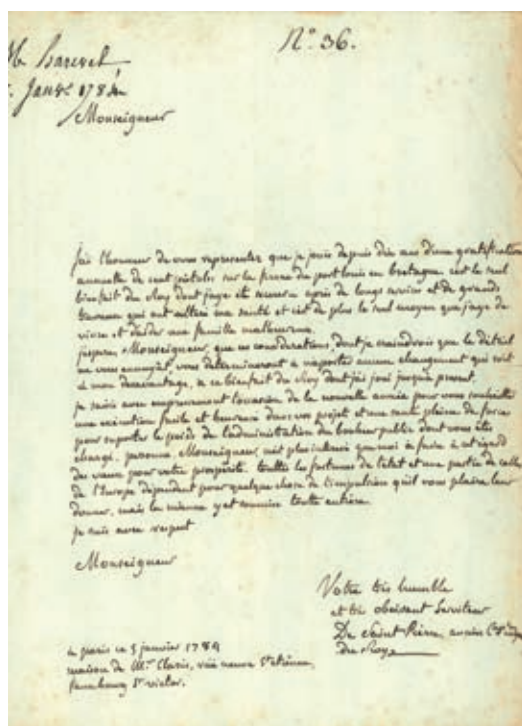 N.º 36.
M. Harvoil
5. Janv.er 1784
Monseigneur
jai l'honneur de vous representer que je jouis depuis dix ans d'une gratification
annuelle de cent pistoles sur la ferme du port louis en bretagne. c'est le seul
bienfait du Roy dont jaye eté honoré après de longs services et de grands
travaux qui ont alteré ma santé et c'est de plus le seul moyen que jaye de
vivre et d'aider une famille malheureuse.
jespere, Monseigneur, que ces considerations, dont je craindrois que le detail
ne vous ennuyat, vous determineront a n'aporter aucun changement qui soit
a mon desavantage, a ce bienfait du Roy dont jai joui jusqua present.
je saisis avec empressement l'ocasion de la nouvelle année pour vous souhaiter
une execution facile et heureuse dans vos projets et une santé pleine de force
pour suporter le poids de l'administration du bonheur public dont vous etes
chargé. personne, Monseigneur, n'est plus interessé que moi a faire a cet egard
des vœux pour votre prosperité. toutes les fortunes de l'etat et une partie de celles
de l'Europe dependent pour quelque chose de l'impulsion qu'il vous plaira leur
donner, mais la mienne y est soumise toutte entiere.
je suis avec respect
Monseigneur
Votre très humble
et très obeissant Serviteur
De Saint Pierre, ancien
du Roy
a paris ce 5 janvier 1784
maison de Mr. Clavis, rüe neuve St etienne,
fauxbourg St victor.